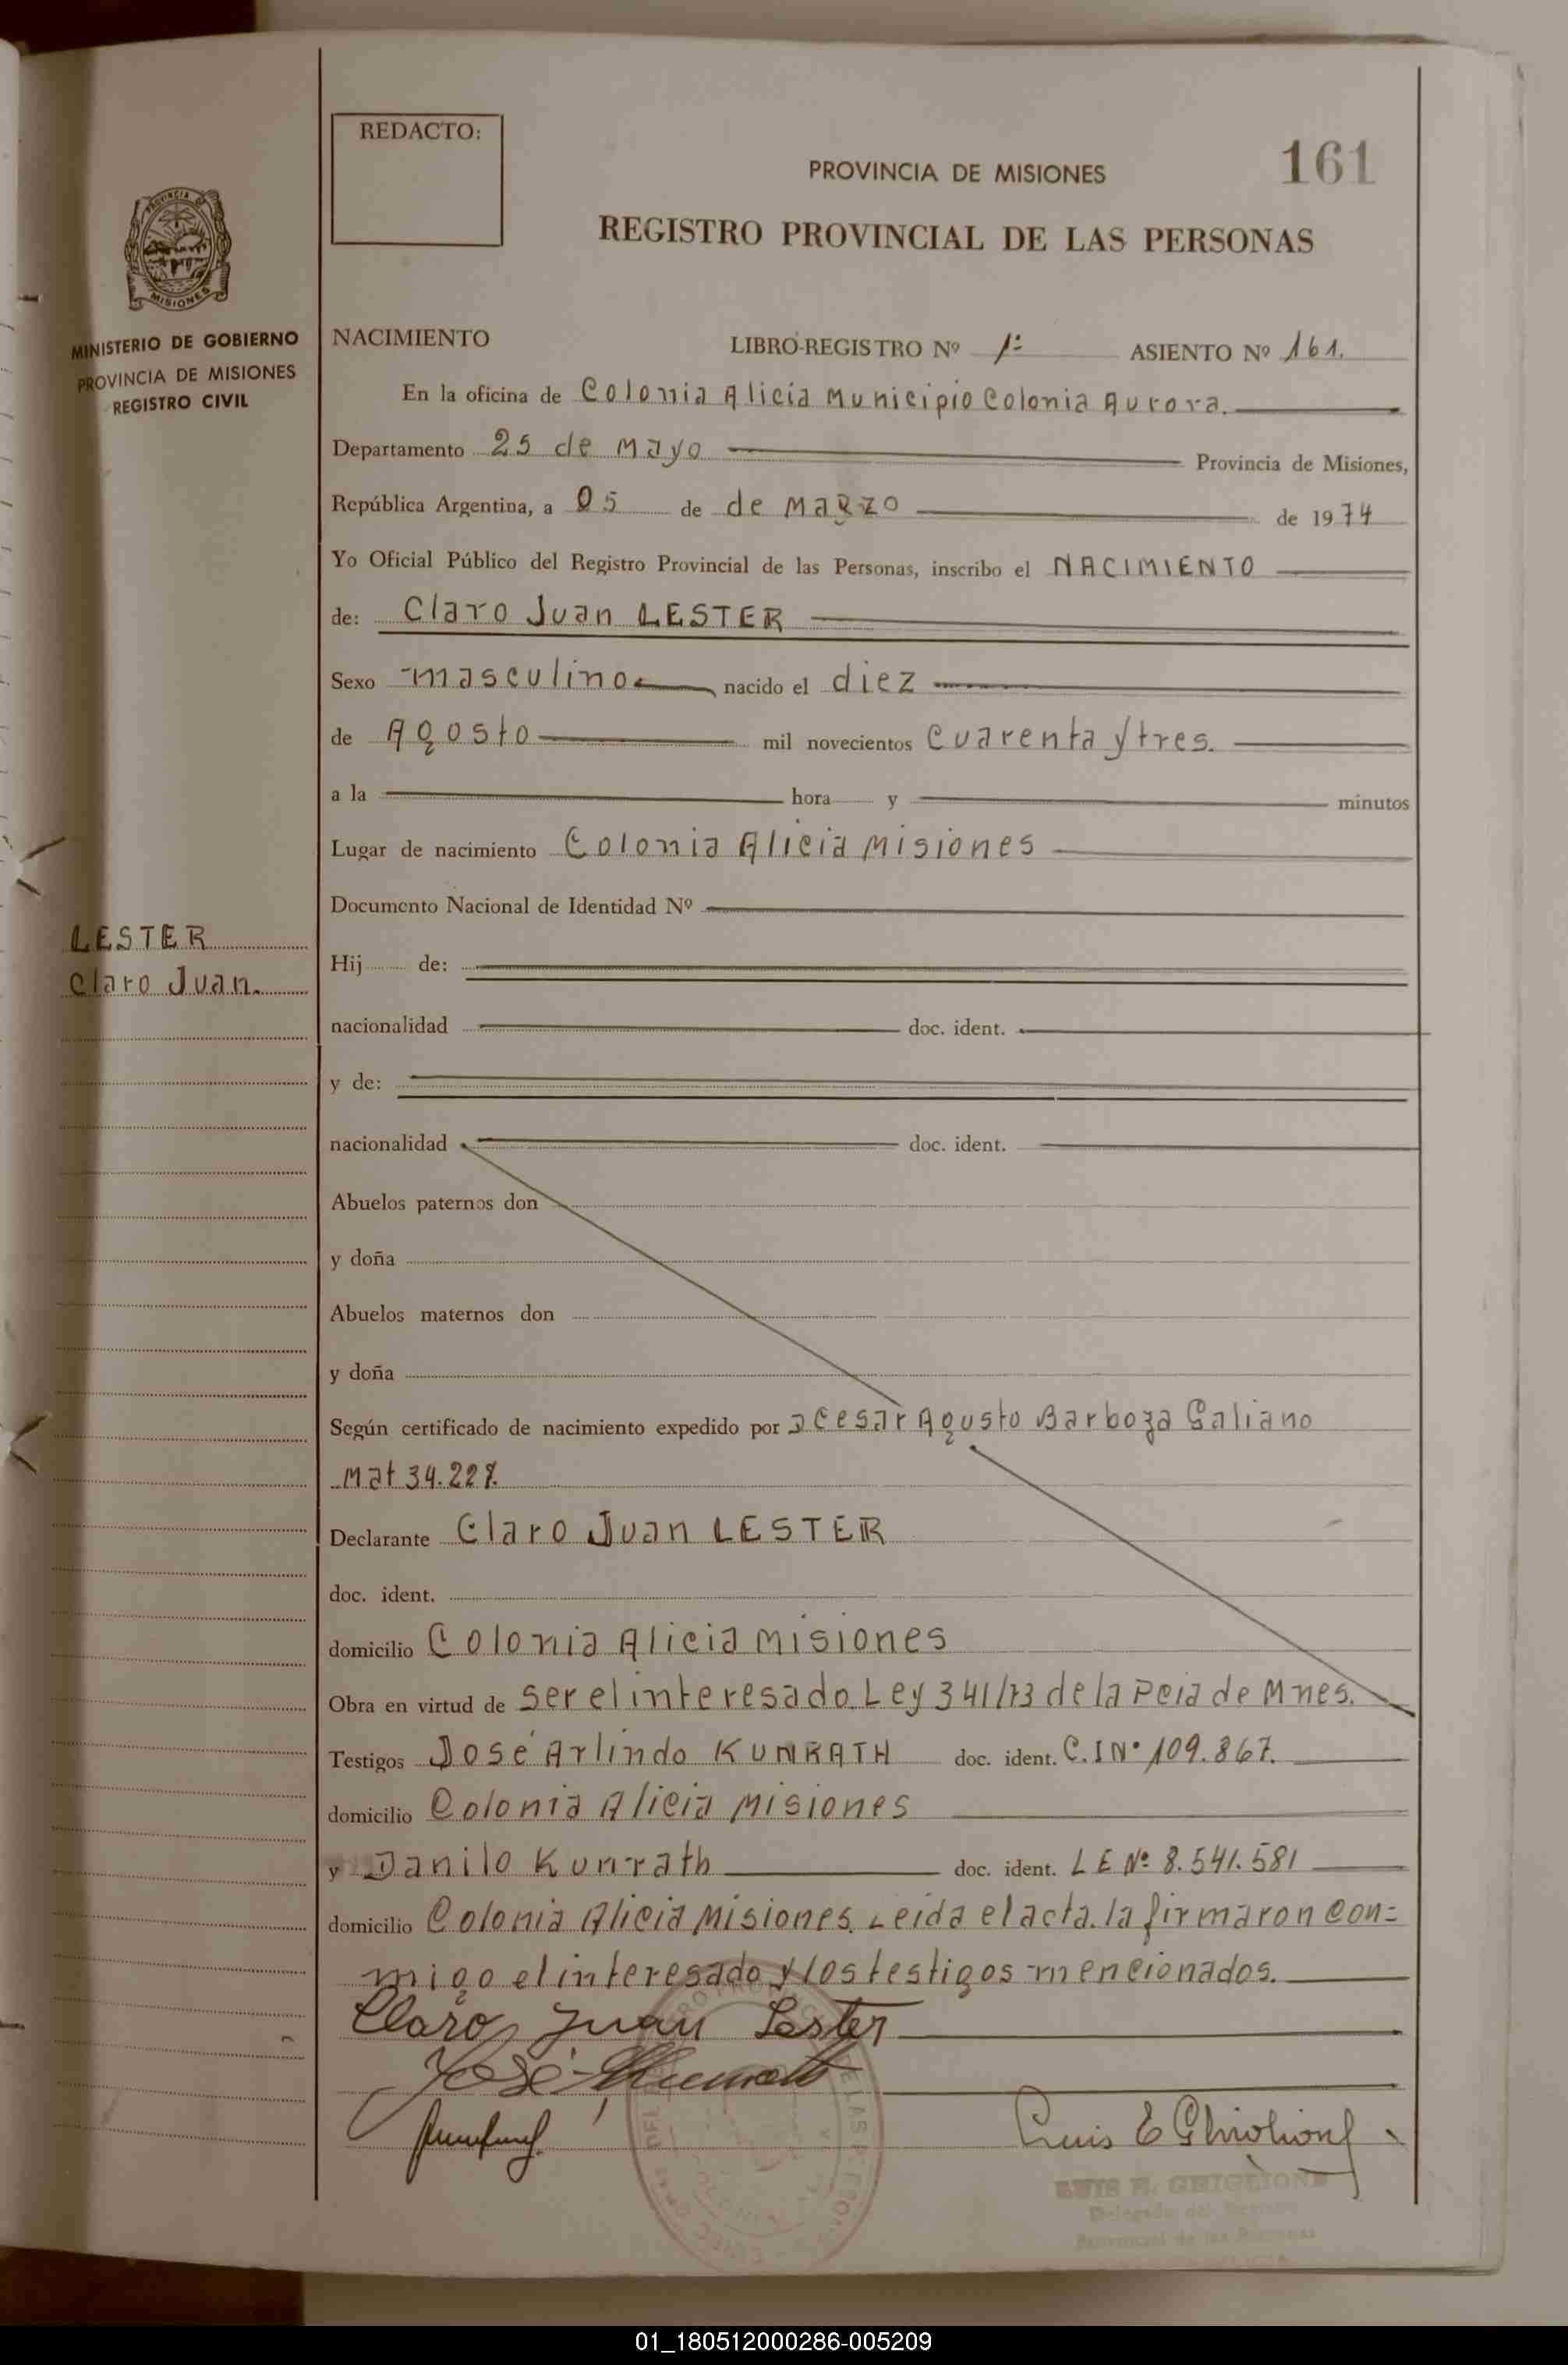 REDACTO:
161
PROVINCIA DE MISIONES
REGISTRO PROVINCIAL DE LAS PERSONAS
PROVINCIA DE
MISIONES
MINISTERIO DE GOBIERNO
PROVINCIA DE MISIONES
REGISTRO CIVIL
NACIMIENTO LIBRO-REGISTRO Nº 1º ASIENTO Nº 161.
En la oficina de Colonia Alicia Municipio Colonia Aurora.
Departamento 25 de Mayo Provincia de Misiones,
República Argentina, a 05 de de Marzo de 1974
Yo Oficial Público del Registro Provincial de las Personas, inscribo el NACIMIENTO
de: Claro Juan LESTER
Sexo masculino nacido el diez
de Agosto mil novecientos Cuarenta y tres.
a la hora y minutos
Lugar de nacimiento Colonia Alicia Misiones
Documento Nacional de Identidad Nº
LESTER
Claro Juan.
Hij de:
nacionalidad doc. ident.
y de:
nacionalidad doc. ident.
Abuelos paternos don
y doña
Abuelos maternos don
y doña
Según certificado de nacimiento expedido por Cesar Agusto Barboza Galiano
Mat 34.227.
Declarante Claro Juan LESTER
doc. ident.
domicilio Colonia Alicia Misiones
Obra en virtud de ser el interesado. Ley 341/73 de la Pcia de Mnes.
Testigos José Arlindo KUNRATH doc. ident. C.I Nº 109.867.
domicilio Colonia Alicia Misiones
y Danilo Kunrath doc. ident. L E Nº 8.541.581
domicilio Colonia Alicia Misiones. Leida el acta. la firmaron con=
migo el interesado y los testigos mencionados.
Claro Juan Lester
José
Luis E Ghiglione
LUIS E. GHIGLIONE
Delegado del Registro
Provincial de las Personas
01_180512000286-005209